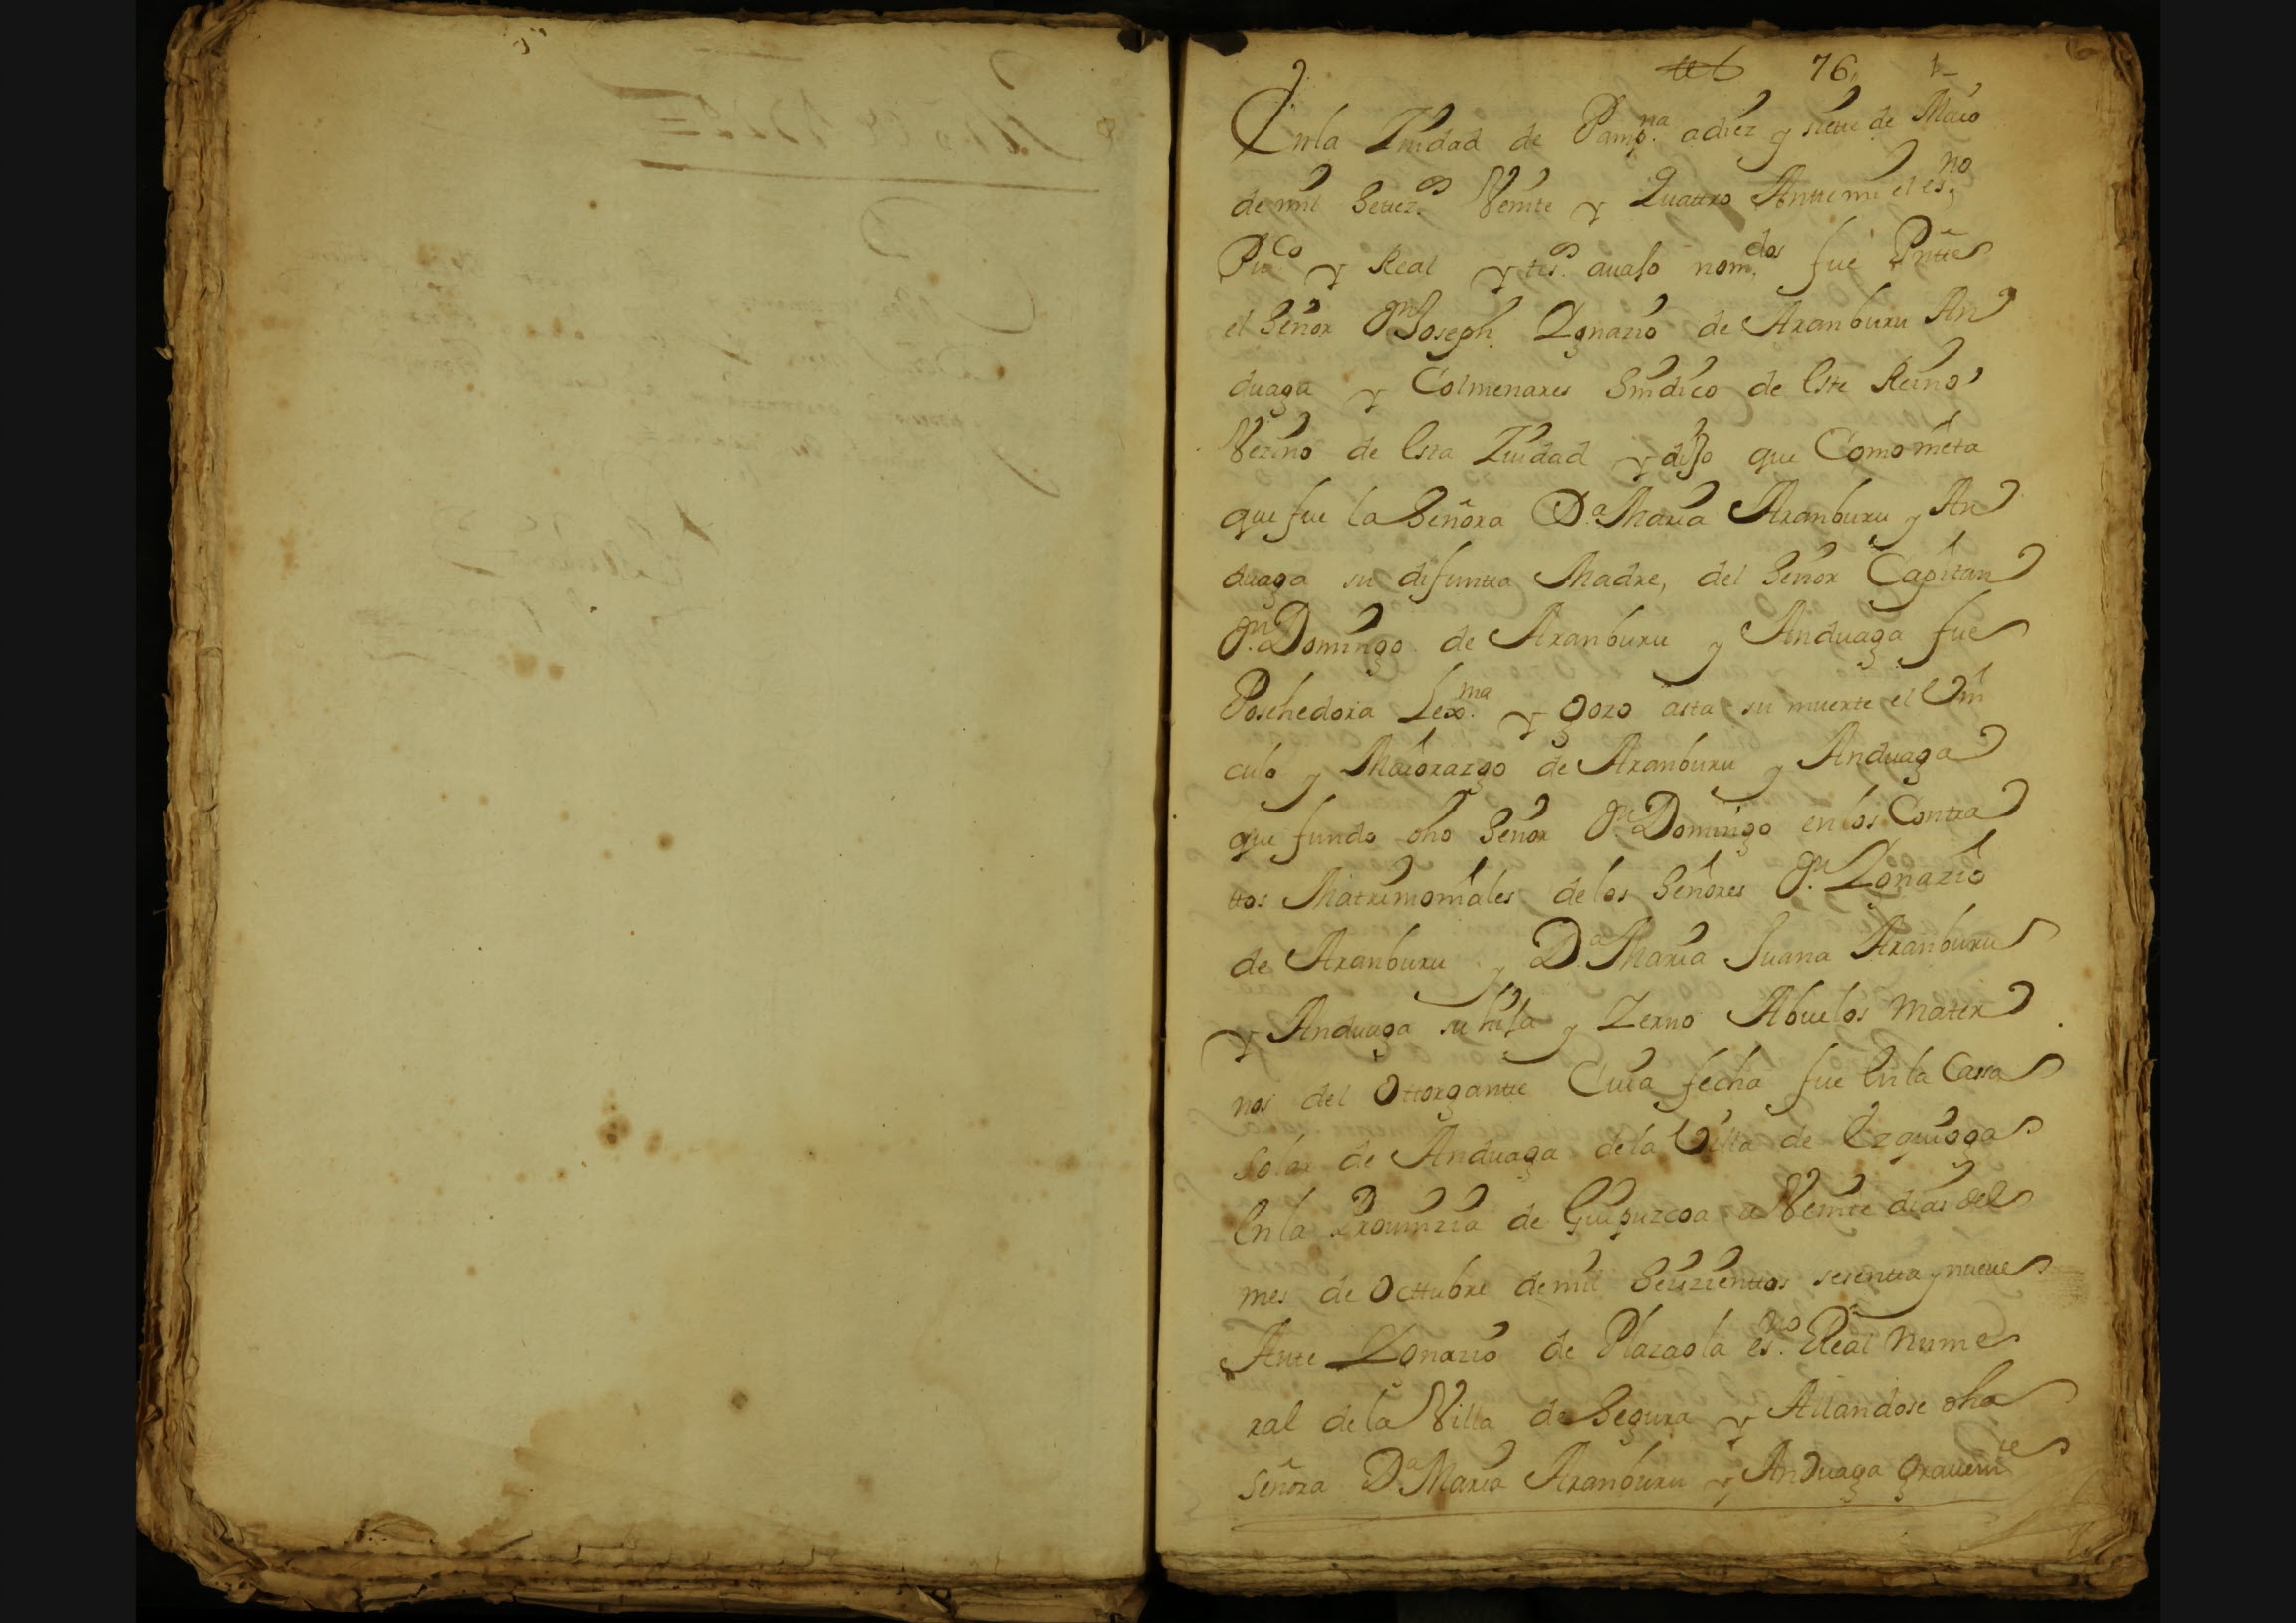 76
Enla Ziudad de Pamp.na adiez y siette de Maio
de mil Settez.s Veinte y Quattro Antte mi el es.no
Pu.co y Real y tts.s auaſo nom.dos fue Pntte
el Señor Dn Joseph Ygnazio de Aranburu An
duaga y Colmenares Sindico de este Reino
Vezino de esta Ziudad y diſo que Como nieta
que fue la Señora D.a Maria Aranburu y An
duaga su difuntta Madre, del Señor Capitan
Dn. Domingo de Aranburu y Anduaga fue
Poschedora Lex.ma y gozo asta su muerte el Vin
culo y Maiorazgo de Aranburu y Anduaga
que fundo dho Señor Dn. Domingo en los Contra
ttos Matrimoniales de los Señores Dn. Ygnazio
de Aranburu y D.a Maria Juana Aranburu
y Anduaga su hiſa y Zerno Abuelos mater
nos del Ottorgantte Cuia fecha fue en la Cassa
solar de Anduaga dela Villa de Ezquioga
en la Prouinzia de Guipuzcoa a Veinte dias del
mes de Octtubre de mil Seiszienttos sesentta y nueue
Ante Ygnazio de Plazaola es.no Real nume
ral dela Villa de Segura y Allandose dha
señora D.a Maria Aranburu y Anduaga grauem.te